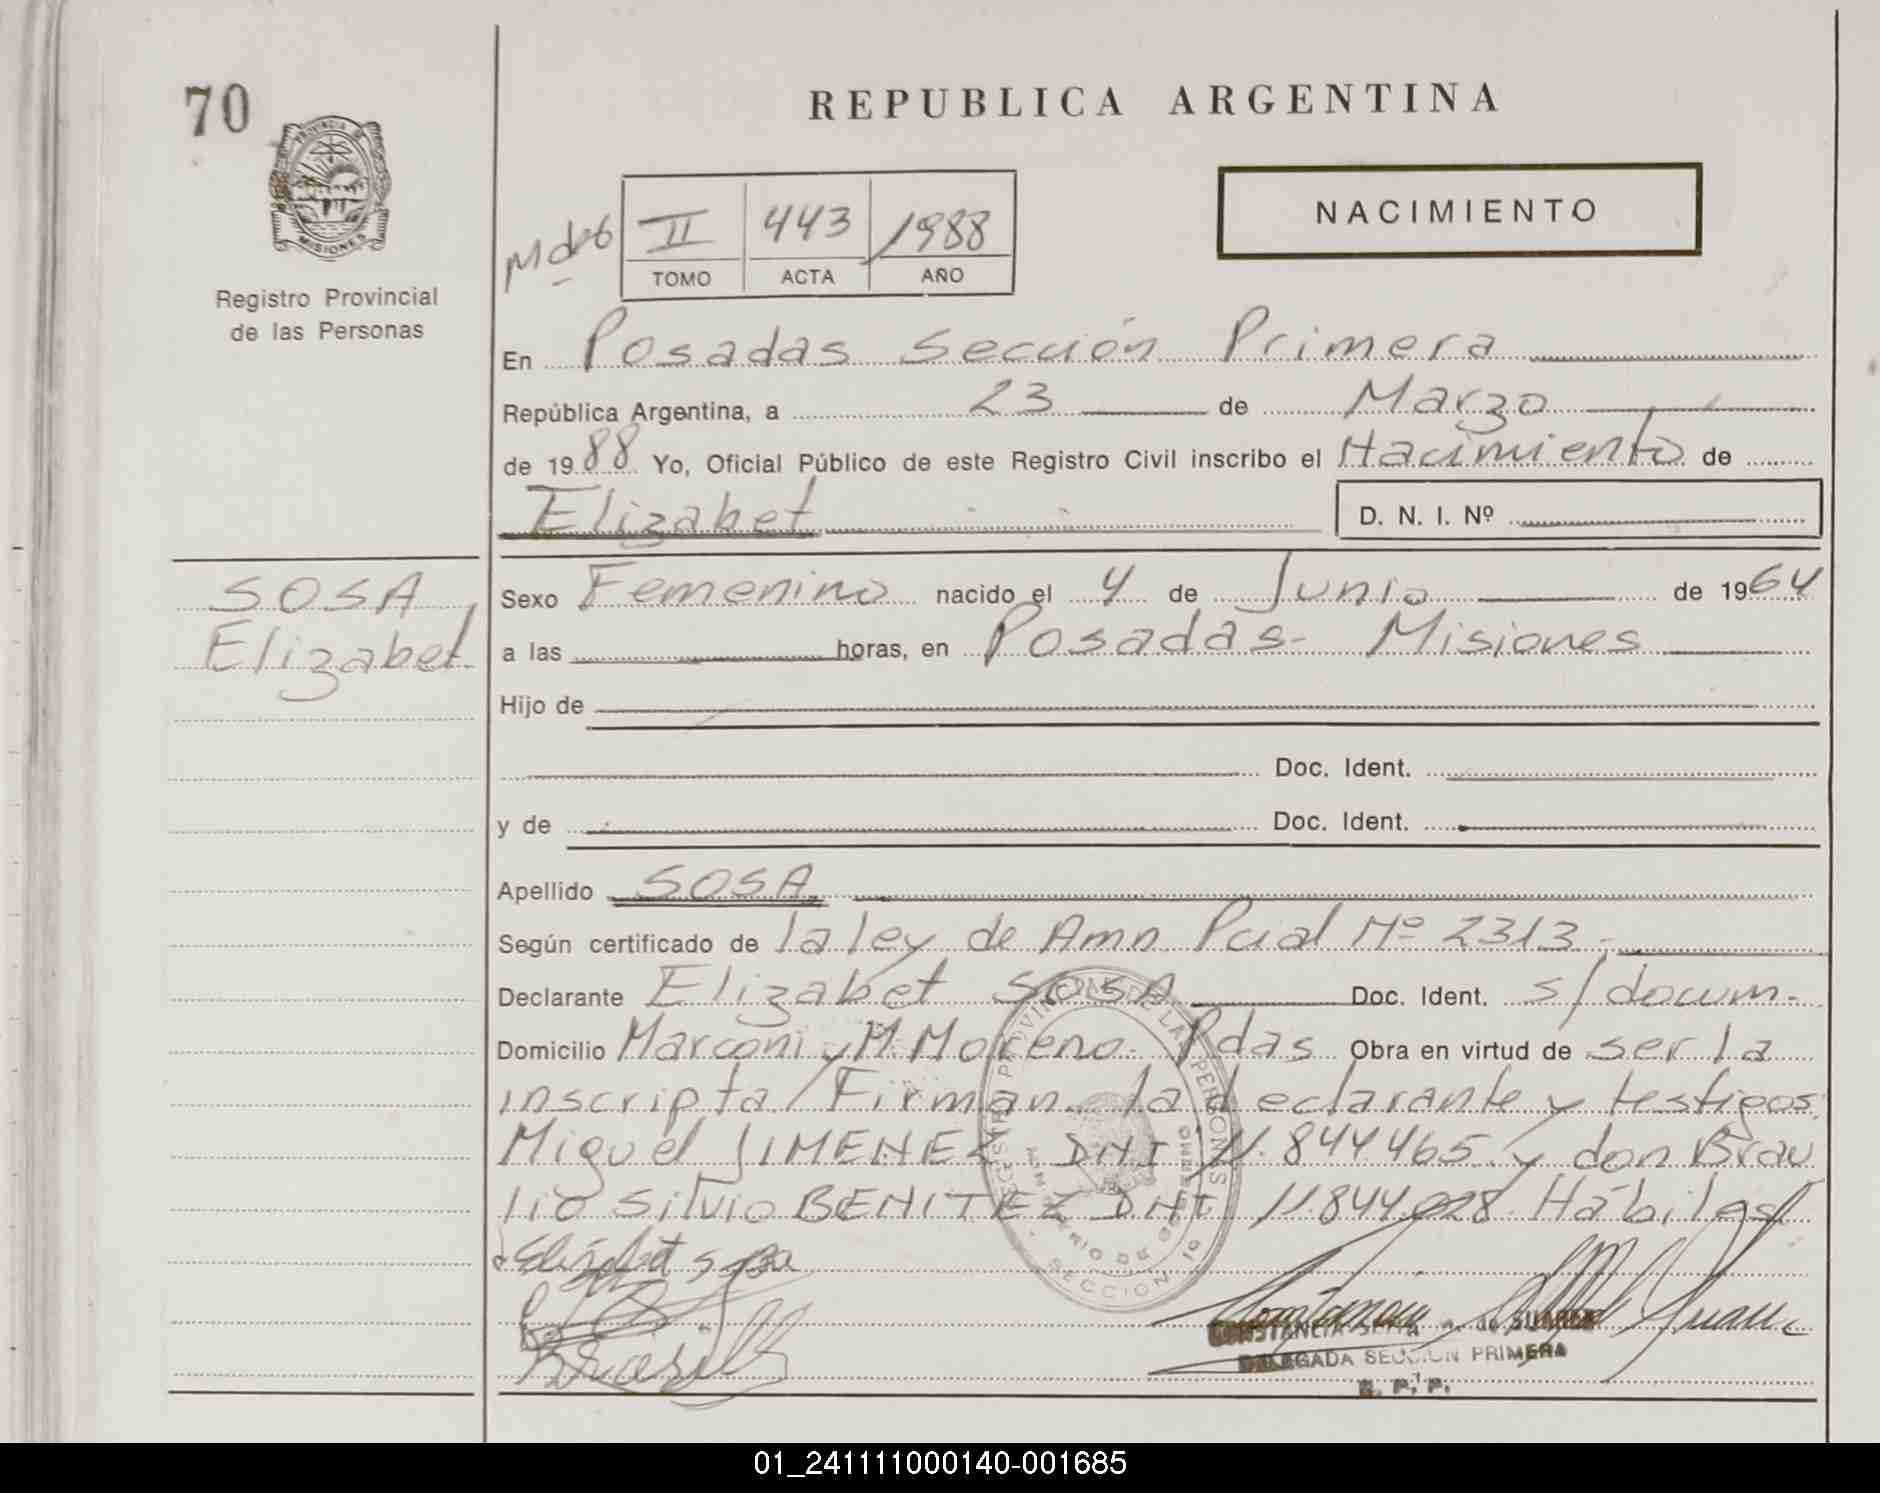 70
REPUBLICA ARGENTINA
PROVINCIA D
MISIONES
Registro Provincial
de las Personas
NACIMIENTO
II 443 1988
TOMO ACTA AÑO
En Posadas Sección Primera
República Argentina, a 23 de Marzo
de 1988 Yo, Oficial Público de este Registro Civil inscribo el Nacimiento de
Elizabet D. N. I. Nº
SOSA
Elizabet
Sexo Femenino nacido el 4 de Junio de 1964
a las horas, en Posadas- Misiones
Hijo de
Doc. Ident.
y de Doc. Ident.
Apellido SOSA
Según certificado de la ley de Amn Pcial Nº 2313.-
Declarante Elizabet SOSA Doc. Ident. s/docum-
Domicilio Marconi y M. Moreno- Pdas Obra en virtud de ser la
inscripta/Firman la declarante y testigos
Miguel JIMENEZ DNI 11.844465 y don Brau
lio Silvio BENITEZ DNI 11.844.028. Hábiles
Elizabet Sosa
CONSTANCIA de SUAREZ
DELEGADA SECCION PRIMERA
R. P. P.
SECCION 1a
01_241111000140-001685